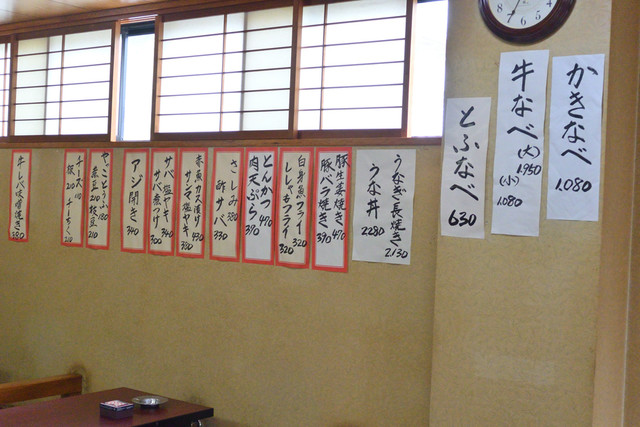 かきなべ
1,080
牛なべ
(大)
1,950
(小)
1,080
とふなべ
630
うなぎ長焼き
2130
うな丼
2280
豚生姜焼き
470
豚バラ焼き
390
白身魚フライ
320
ししゃもフライ
320
とんかつ 470
肉天ぷら
390
さしみ 380
酢サバ
330
赤魚カス漬け
430
サンマ塩ヤキ
330
サバ塩ヤキ
340
サバ煮つけ
300
アジ開き
340
やっことうふ
180
枝豆
210
チーズ
210
牛レバ味噌焼き
280